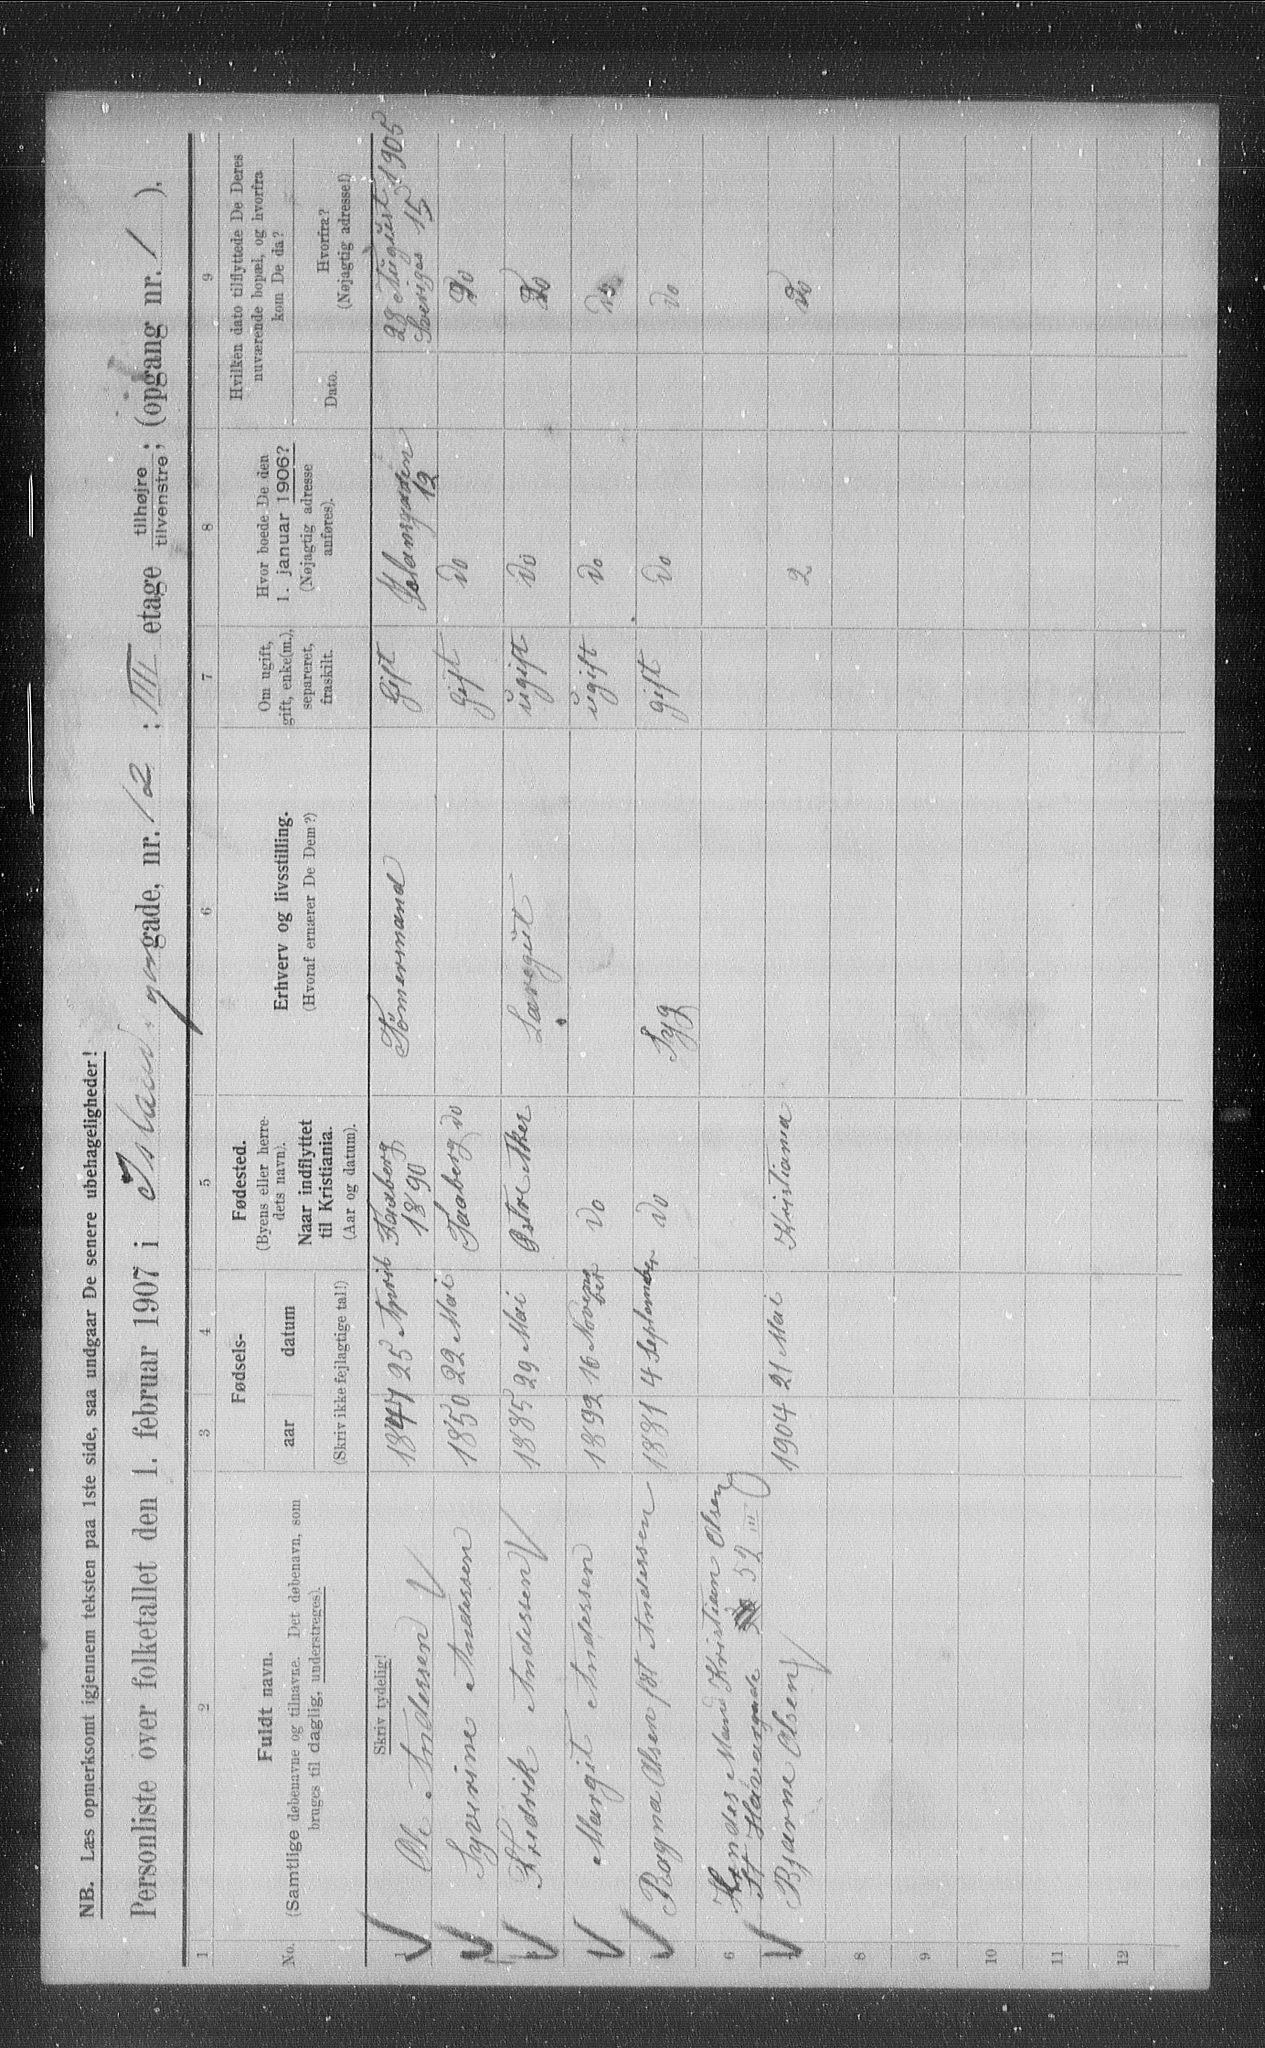 NB. Læs opmerksomt igjennem teksten paa 1ste side, saa undgaar De senere ubehageligheder!
Personliste over folketallet den 1. februar 1907 i Islands gade, nr. 12 ; III etage tilhøjre tilvenstre ; (opgang nr. 1 ).
1 2 3 4 5 6 7 8 9
No.
Fuldt navn.
(Samtlige døbenavne og tilnavne. Det døbenavn, som
bruges til daglig, understreges).
Fødsels-
aar datum
(Skriv ikke fejlagtige tal!)
Fødested.
(Byens eller herre-
dets navn).
Naar indflyttet
til Kristiania.
(Aar og datum).
Erhverv og livsstilling.
(Hvoraf ernærer De Dem?)
Om ugift,
gift, enke(m.),
separeret,
fraskilt.
Hvor boede De den
1. januar 1906?
(Nøjagtig adresse
anføres).
Hvilken dato tilflyttede De Deres
nuværende bopæl, og hvorfra
kom De da?
Dato.
Hvorfra?
(Nøjagtig adresse!)
Skriv tydelig!
1 Ole Andersen 1847 25 April Faaberg 1890 Tømermand Gift 12 28 August 1905 Sveriges 15
Syverine Andersen 1850 22 Mai Faaberg do Gift do do
Fredrik Andersen 1885 29 Mai Østre Aker ugift do do
Margit Andersen 1892 16 November do ugift do do
Ragna Olsen føt Andersen 1881 4 September do Syg gift do do
6 Hendes Mand Kristian Olsen
52 III
Bjarne Olsen 1904 21 Mai Kristiania 2 do
8
9
10
11
12